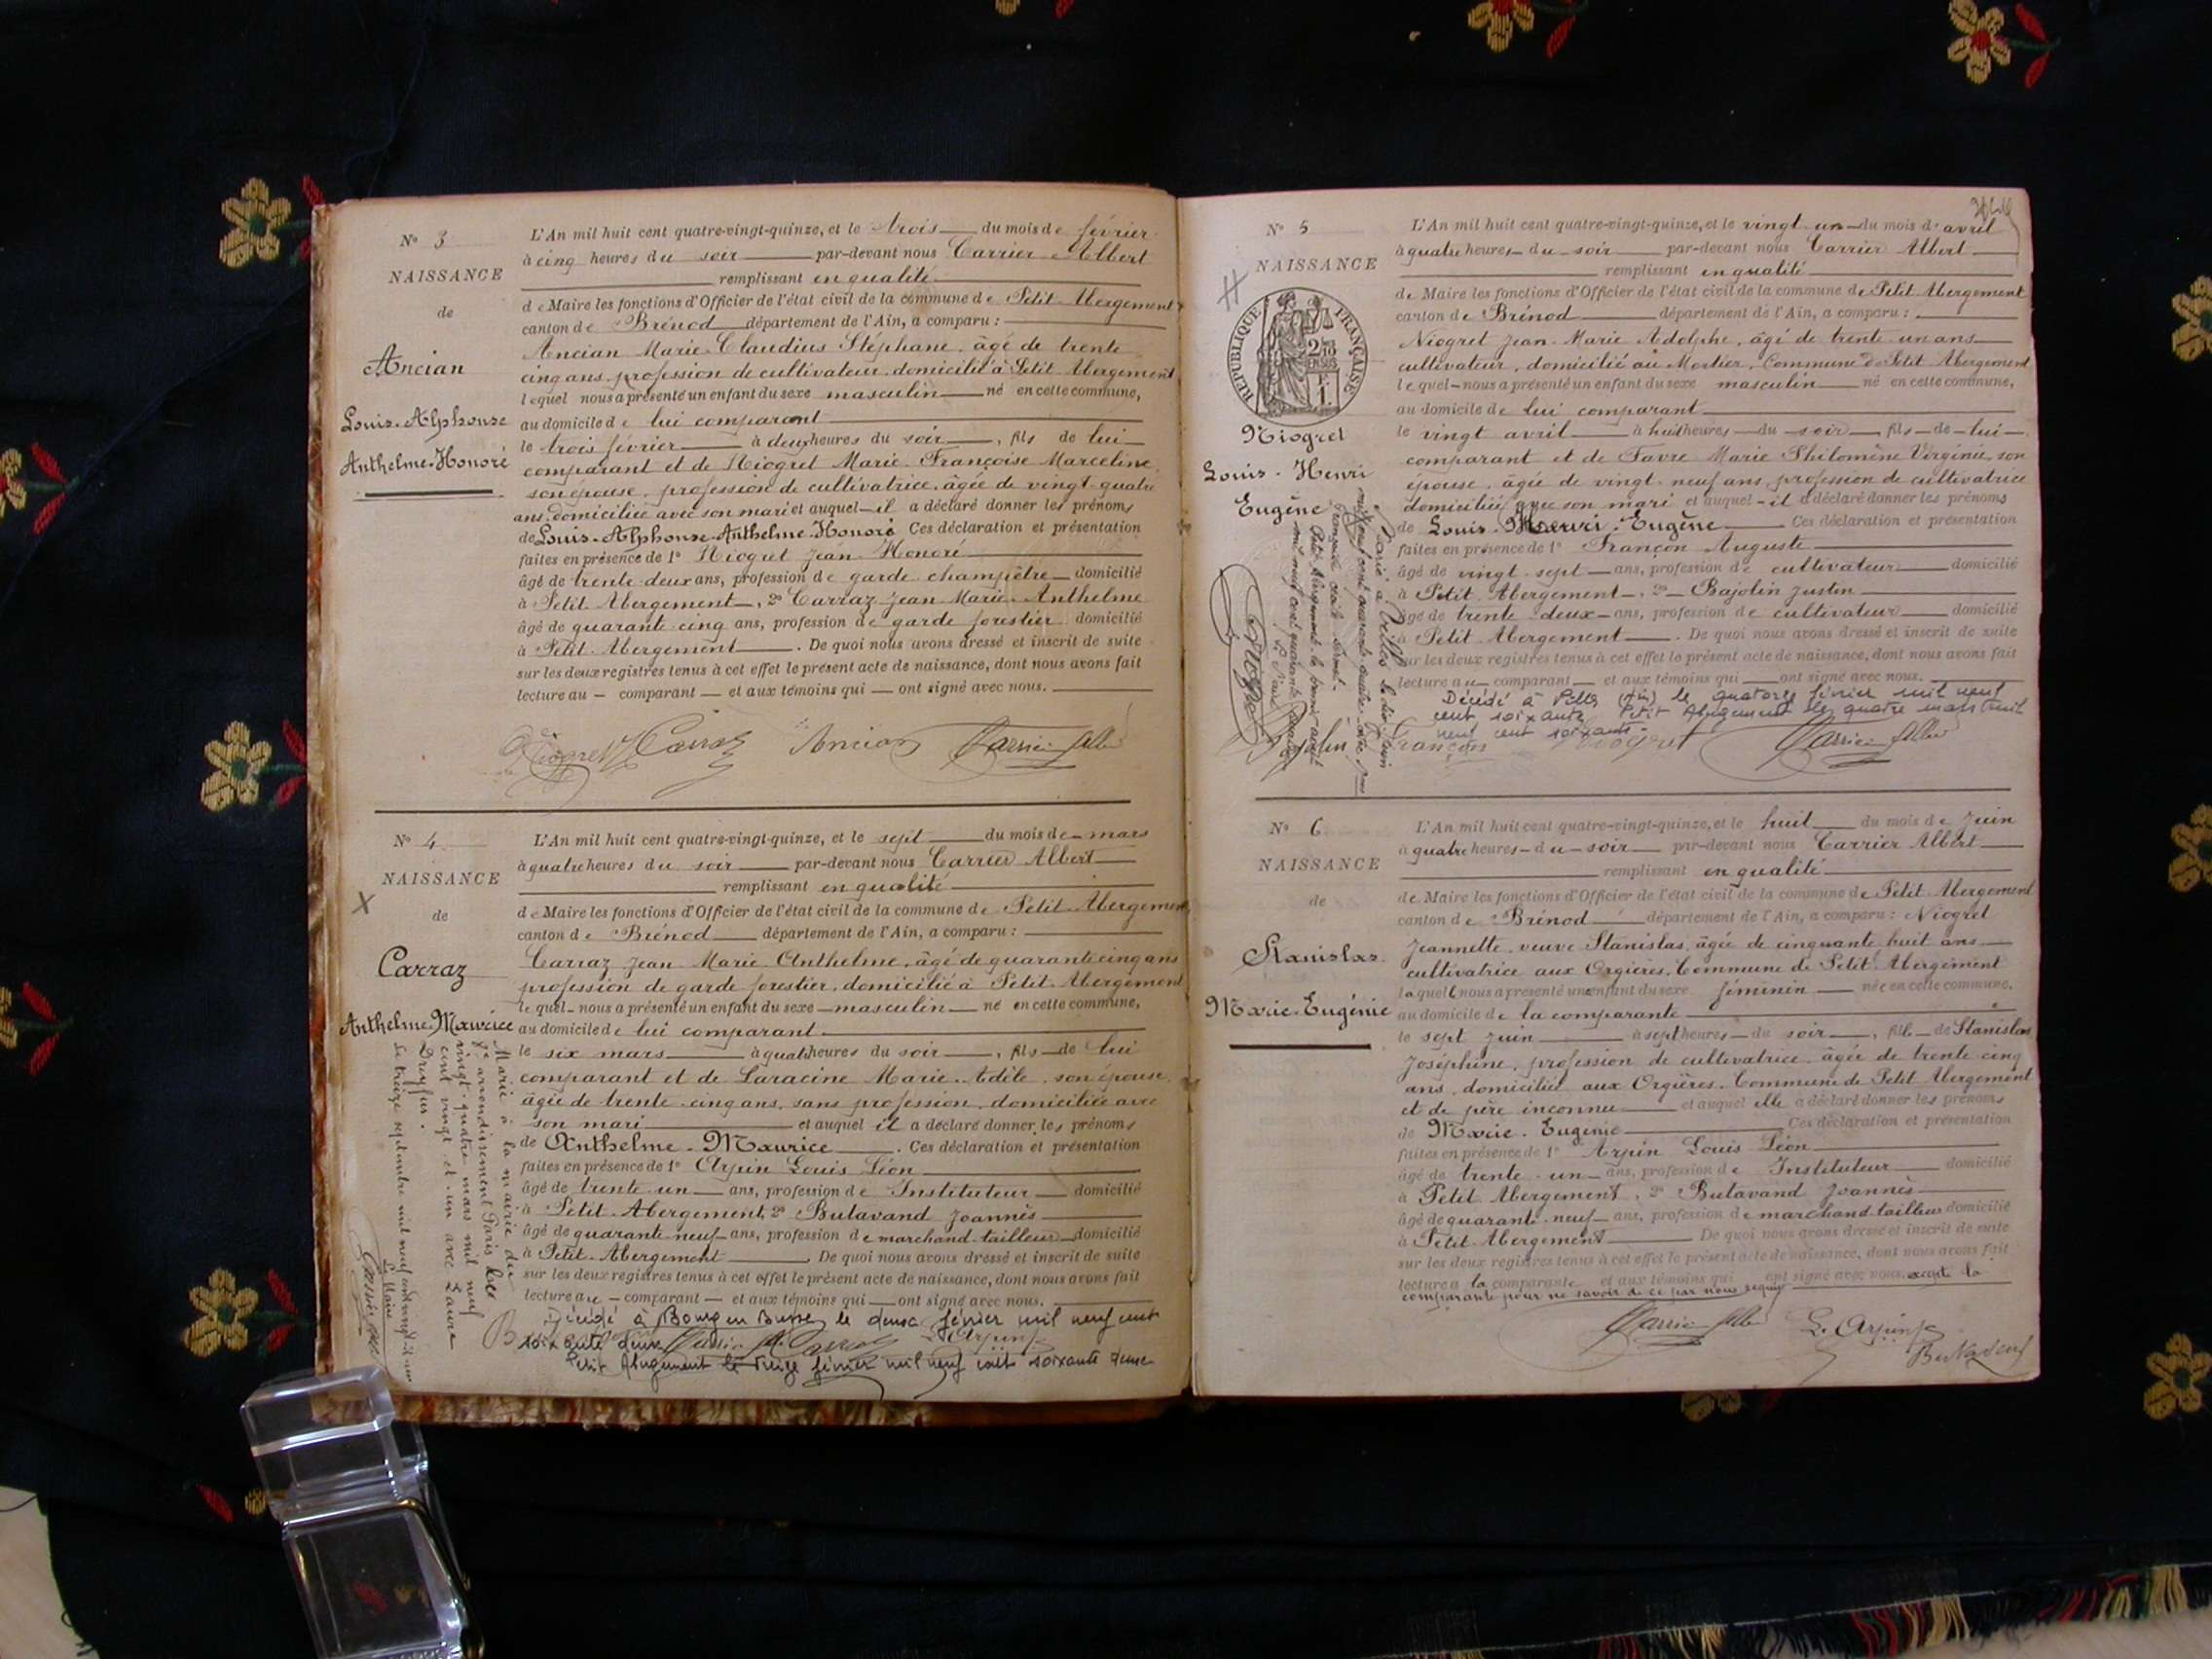 N° 3
NAISSANCE
de
Ancian
Louis-Alphonse
Anthelme-Honoré
L'An mil huit cent quatre-vingt-quinze, et le trois du mois de février
à cinq heures du soir par-devant nous Carrier Albert
remplissant en qualité
de Maire les fonctions d'Officier de l'état civil de la commune de Petit Abergement
canton de Brénod département de l'Ain, a comparu :
Ancian Marie-Claudius Stéphane, âgé de trente
cinq ans, profession de cultivateur, domicilié à Petit Abergement
lequel nous a présenté un enfant du sexe masculin né en cette commune,
au domicile de lui comparant
le trois février à deux heures du soir, fils de lui
comparant et de Niogret Marie-Françoise Marceline
son épouse, profession de cultivatrice, âgée de vingt-quatre
ans, domiciliée avec son mari et auquel il a déclaré donner les prénoms
de Louis-Alphonse-Anthelme-Honoré Ces déclaration et présentation
faites en présence de 1° Niogret Jean-Honoré
âgé de trente-deux ans, profession de garde champêtre domicilié
à Petit-Abergement, 2° Carraz Jean-Marie-Anthelme
âgé de quarante-cinq ans, profession de garde forestier domicilié
à Petit-Abergement. De quoi nous avons dressé et inscrit de suite
sur les deux registres tenus à cet effet le présent acte de naissance, dont nous avons fait
lecture au comparant et aux témoins qui ont signé avec nous.
Niogret Carraz Ancian Carrier Albert
N° 4
NAISSANCE
X
de
Carraz
Anthelme-Maurice
Marié à la mairie du
arrondissement Paris le
vingt-quatre mars mil neuf
cent vingt et un avec Laure
Dreyfus.
Le treize septembre mil neuf cent vingt et un
Le Maire
L'An mil huit cent quatre-vingt-quinze, et le sept du mois de mars
à quatre heures du soir par-devant nous Carrier Albert
remplissant en qualité
de Maire les fonctions d'Officier de l'état civil de la commune de Petit-Abergement
canton de Brénod département de l'Ain, a comparu :
Carraz Jean Marie Anthelme, âgé de quarante cinq ans
profession de garde forestier, domicilié à Petit-Abergement
lequel nous a présenté un enfant du sexe masculin né en cette commune,
au domicile de lui comparant
le six mars à quatre heures du soir, fils de lui
comparant et de Laracine Marie-Adèle, son épouse,
âgée de trente-cinq ans, sans profession, domiciliée avec
son mari et auquel il a déclaré donner les prénoms
de Anthelme-Maurice. Ces déclaration et présentation
faites en présence de 1° Arpin Louis Léon
âgé de trente-un ans, profession de Instituteur domicilié
à Petit-Abergement, 2° Butavand Joannès
âgé de quarante-neuf ans, profession de marchand-tailleur domicilié
à Petit-Abergement De quoi nous avons dressé et inscrit de suite
sur les deux registres tenus à cet effet le présent acte de naissance, dont nous avons fait
lecture au comparant et aux témoins qui ont signé avec nous.
Décédé à Bourg en Bresse le douze février mil neuf cent
soixante deux
Petit Abergement le treize février mil neuf cent soixante deux
N° 5
NAISSANCE
RÉPUBLIQUE FRANÇAISE
Niogret
Louis-Henri
Eugène
Marié à Belley le dix juin
mil neuf cent quarante-quatre
L'An mil huit cent quatre-vingt-quinze, et le vingt un du mois d'avril
à quatre heures du soir par-devant nous Carrier Albert
remplissant en qualité
de Maire les fonctions d'Officier de l'état civil de la commune de Petit Abergement
canton de Brénod département de l'Ain, a comparu :
Niogret Jean-Marie Adolphe, âgé de trente un ans
cultivateur, domicilié au Mortier, Commune de Petit Abergement
lequel nous a présenté un enfant du sexe masculin né en cette commune,
au domicile de lui comparant
le vingt avril à huit heures du soir, fils de lui
comparant et de Favre Marie Philomène Virginie, son
épouse, âgée de vingt-neuf ans, profession de cultivatrice
domiciliée avec son mari et auquel il a déclaré donner les prénoms
de Louis-Henri-Eugène Ces déclaration et présentation
faites en présence de 1° Françon Auguste
âgé de vingt-sept ans, profession de cultivateur domicilié
à Petit Abergement, 2° Bajolin Justin
âgé de trente-deux ans, profession de cultivateur domicilié
à Petit Abergement. De quoi nous avons dressé et inscrit de suite
sur les deux registres tenus à cet effet le présent acte de naissance, dont nous avons fait
lecture au comparant et aux témoins qui ont signé avec nous.
Décédé à (Ain) le quatorze février mil neuf
cent soixante Petit Abergement le quatre mars mil
neuf cent soixante.
Françon Niogret Carrier Albert
N° 6
NAISSANCE
de
Stanislas
Marie-Eugénie
L'An mil huit cent quatre-vingt-quinze, et le huit du mois de Juin
à quatre heures du soir par-devant nous Carrier Albert
remplissant en qualité
de Maire les fonctions d'Officier de l'état civil de la commune de Petit Abergement
canton de Brénod département de l'Ain, a comparu : Niogret
Jeannette veuve Stanislas, âgée de cinquante huit ans
cultivatrice aux Orgières, Commune de Petit Abergement
laquelle nous a présenté un enfant du sexe féminin née en cette commune,
au domicile de la comparante
le sept Juin à sept heures du soir, fille de Stanislas
Joséphine, profession de cultivatrice, âgée de trente cinq
ans, domiciliée aux Orgières, Commune de Petit Abergement
et de père inconnu et auquel elle a déclaré donner les prénoms
de Marie-Eugénie Ces déclaration et présentation
faites en présence de 1° Arpin Louis Léon
âgé de trente-un ans, profession de Instituteur domicilié
à Petit Abergement, 2° Butavand Joannès
âgé de quarante-neuf ans, profession de marchand tailleur domicilié
à Petit Abergement De quoi nous avons dressé et inscrit de suite
sur les deux registres tenus à cet effet le présent acte de naissance, dont nous avons fait
lecture à la comparante et aux témoins qui ont signé avec nous, excepté la
comparante pour ne savoir de ce par nous requise
Carrier Albert L. Arpin
Butavand